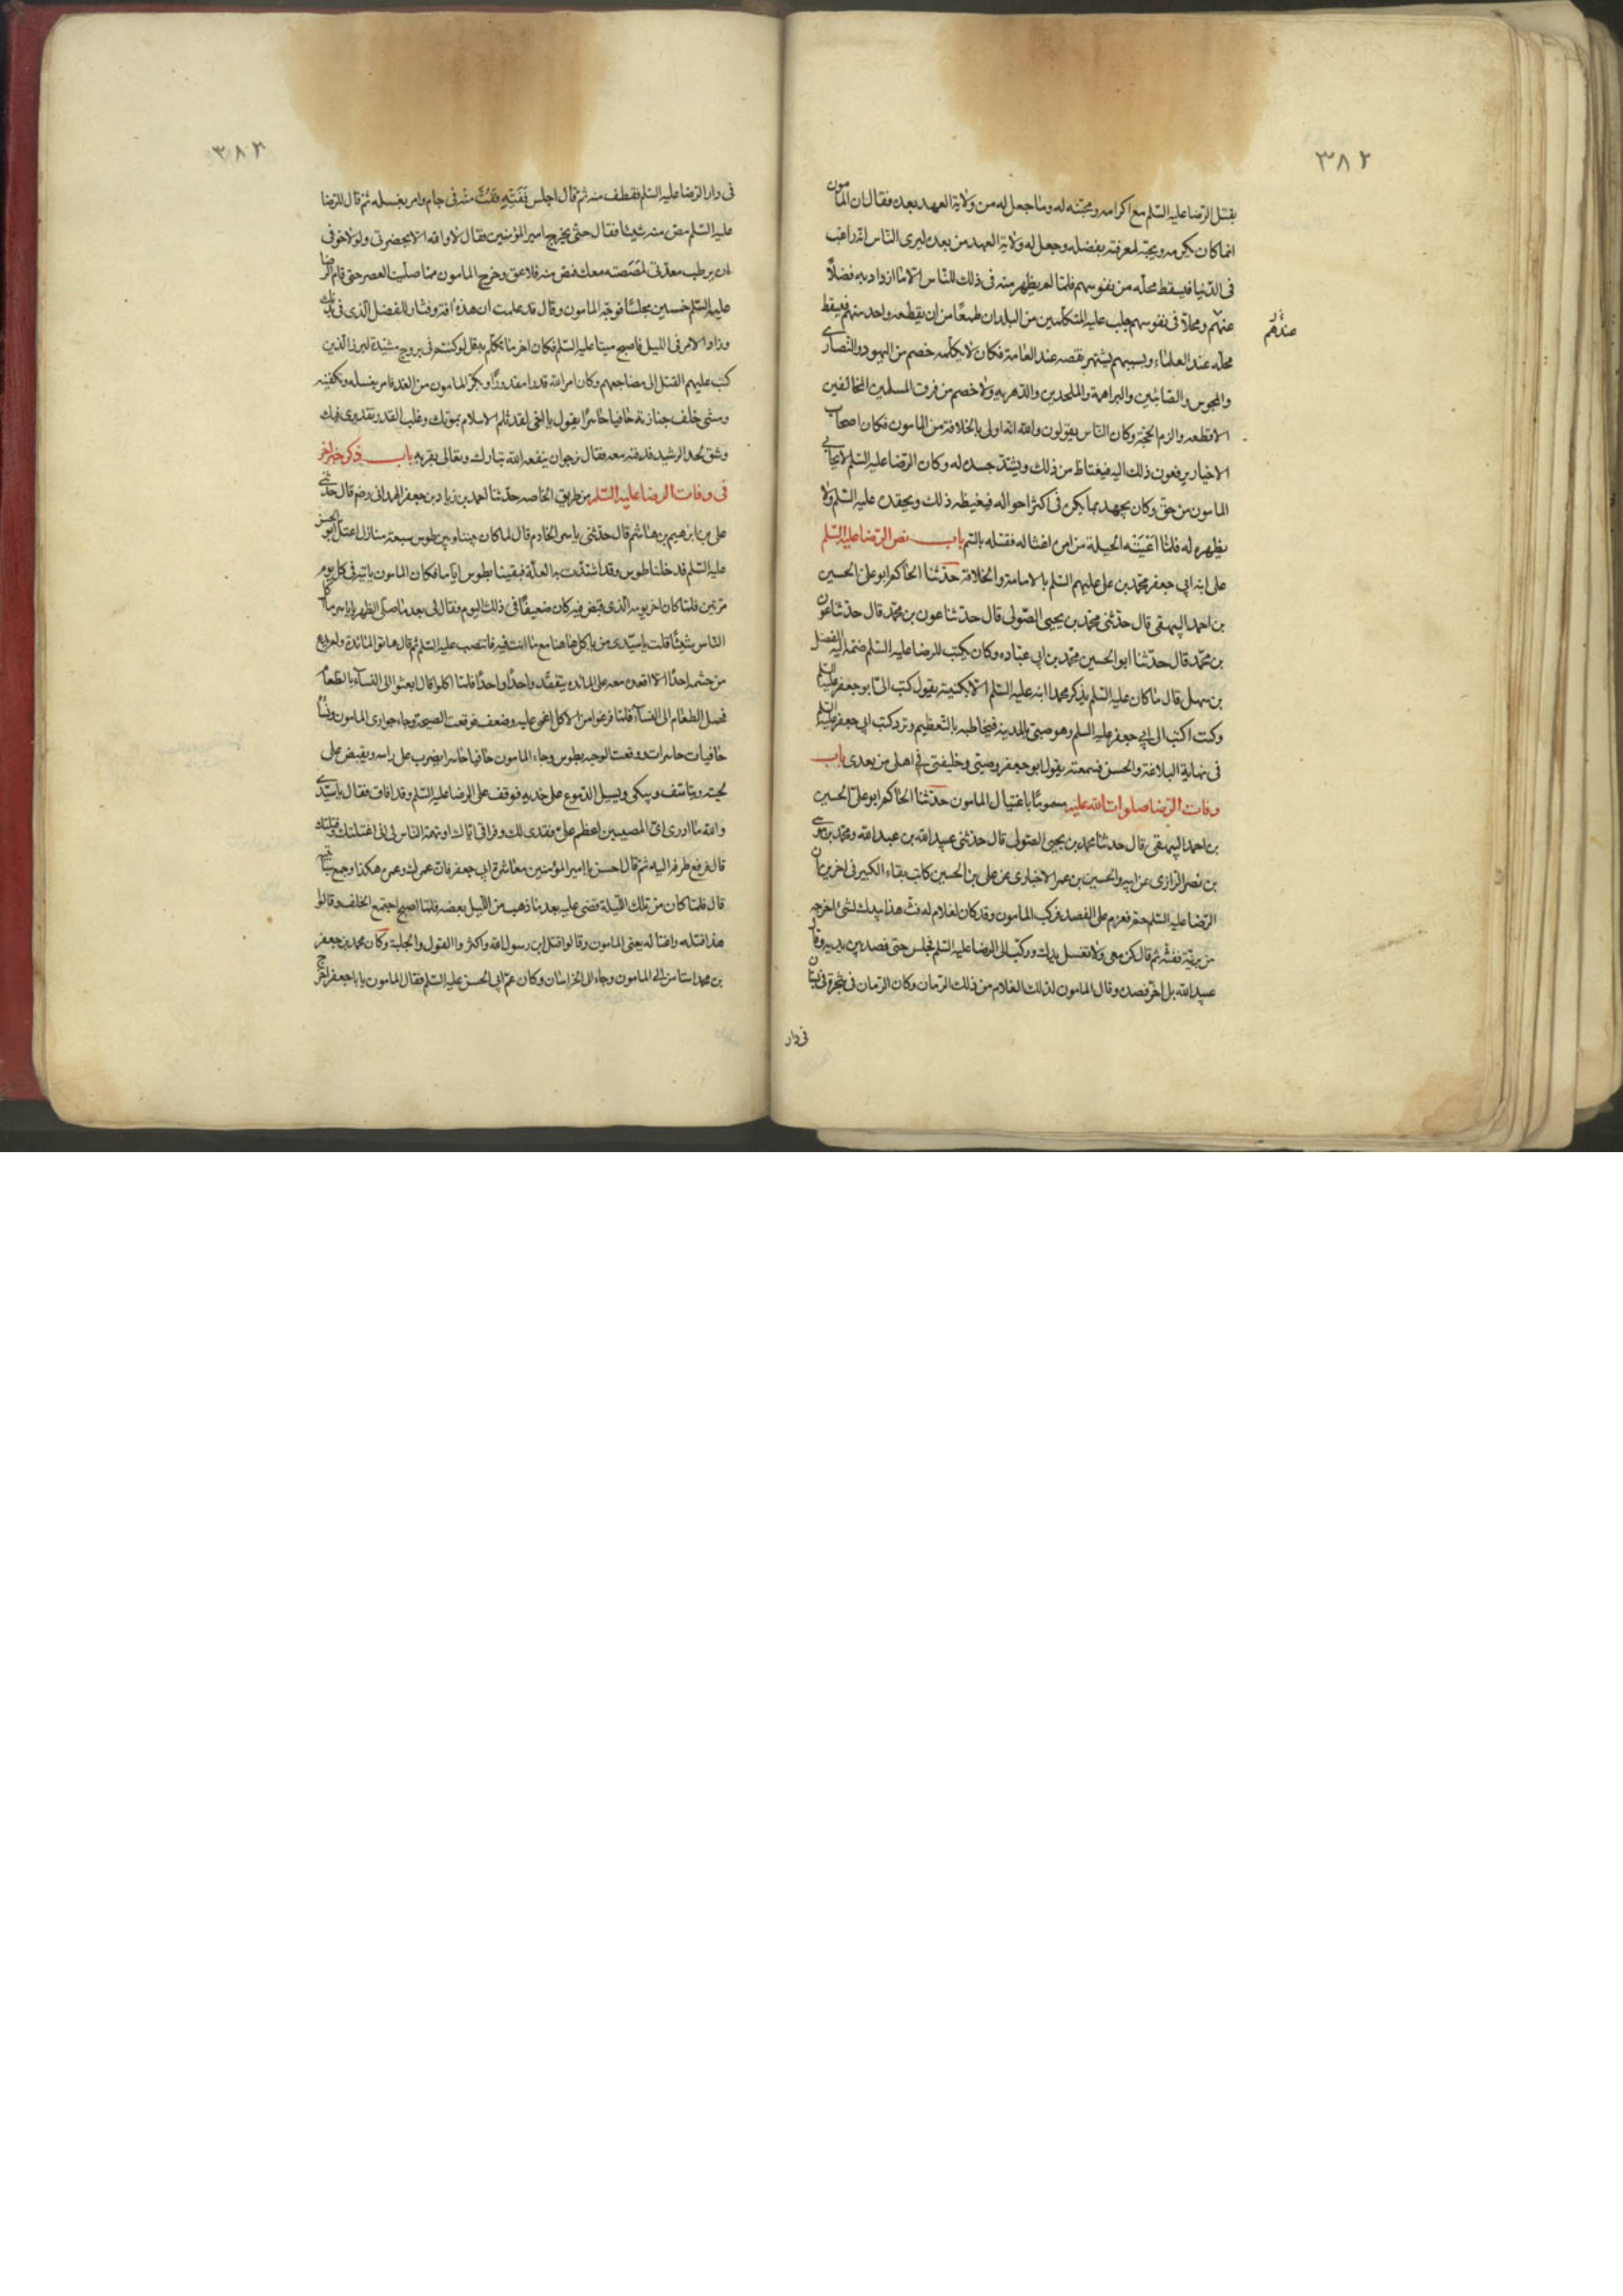 ٣٨٢
بقتل الرضا عليه السلم مع اكرامه ومحبته له وما جعل له من ولاية العهد بعده فقال ان المامون
انما كان يكرمه ويحبه لمعرفته بفضله وجعل له ولاية العهد من بعده ليرى الناس انه راغب
فى الدنيا فيسقط محله من نفوسهم فلما لم يظهر منه فى ذلك للناس الا ما ازداد به فضلاً
عندهم
عنهم ومحلاً فى نفوسهم جلب عليه المتكلمين من البلدان طمعًا من ان يقطعه واحد منهم فيقط
محله عند العلماء وبسببهم يشتهر نقصه عند العامة فكان لا يكلمه خصم من اليهود والنصارى
والمجوس والصابئين والبراهمة والملحدين والدهرية ولا خصم من فرق المسلمين المخالفين
الا قطعه والزم الحجة وكان الناس يقولون والله انه اولى بالخلافة من المامون فكان اصحاب
الاخبار يرفعون ذلك اليه فيغتاظ من ذلك ويشتد حسده له وكان الرضا عليه السلم لا يحابى
المامون من حق وكان يجبهه بما يكره فى اكثر احواله فيغيظه ذلك ويحقده عليه السلم ولا
يظهره له فلما اعيته الحيلة من امره اغتاله فقتله بالسم باب نص الرضا عليه السلم
على ابنه ابى جعفر محمد بن على عليهم السلم بالامامة والخلافة حدثنا الحاكم ابو على الحسين
بن احمد البيهقى قال حدثنى محمد بن يحيى الصولى قال حدثنا عون بن محمد قال حدثنا عون
بن محمد قال حدثنا ابو الحسين محمد بن ابى عباده وكان يكتب للرضا عليه السلم ضمه اليه الفضل
بن سهل قال ما كان عليه السلم يذكر محمدا ابنه عليه السلم الا بكنيته يقول كتب الىّ ابو جعفر عليه السلم
وكنت اكتب الى ابى جعفر عليه السلم وهو صبى بالمدينة فيخاطبه بالتعظيم وترد كتب ابى جعفر عليه السلم
فى نهاية البلاغة والحسن فسمعته يقول ابو جعفر وصيى وخليفتى فى اهلى من بعدى باب
وفات الرضا صلوات الله عليه مسموما باغتيال المامون حدثنا الحاكم ابو على الحسين
بن احمد البيهقى قال حدثنا محمد بن يحيى الصولى قال حدثنى عبيد الله بن عبد الله ومحمد بن موسى
بن نصر الرازى عن ابيه والحسين بن عمر الاخبارى عن على بن الحسين كاتب بقاء الكبير فى اخرين ان
الرضا عليه السلم حم فعزم على الفصد فركب المامون وقد كان لغلام له فت هذا بيدك لشئ اخرجه
من برنية ففته ثم قال كن معى ولا تغسل يدك وركب الى الرضا عليه السلم فجلس حتى فصد بين يديه وقال
عبيد الله بل اخر فصده وقال المامون لذلك الغلام من ذلك الرمان وكان الرمان فى شجرة فى بستان
فى دار
٣٨٣
فى دار الرضا عليه السلم فقطف منه ثم قال اجلس ففته ففت منه فى جام وامر بغسله ثم قال للرضا
عليه السلم مص منه شيئا فقال حتى يخرج امير المؤمنين فقال لا والله الا بحضرتى ولولا خوفى
ان يرطب معدتى لمصصته معك فمص منه فلاعق وخرج المامون فما صليت العصر حتى قام الرضا
عليه السلم خمسين مجلسًا فوجه المامون وقال قد علمت ان هذه افة وفتار للفضل الذى فى بدنك
وزاد الامر فى الليل فاصبح ميتا عليه السلم فكان اخر ما تكلم به قل لو كنتم فى بروج مشيدة لبرز الذين
كتب عليهم القتل الى مضاجعهم وكان امر الله قدرا مقدورًا وبكر المامون من الغد فامر بغسله وتكفينه
ومشى خلف جنازته حافيا حاسرًا يقول يا اخى لقد ثلم الاسلام بموتك وغلب القدر تقديرى فيك
وشق لحد الرشيد فدفنه معه فقال نرجو ان ينفعه الله تبارك وتعالى بقربه باب ذكر خبر اخر
فى وفات الرضا عليه السلم من طريق الخاصه حدثنا احمد بن زياد بن جعفر الهمدانى رضه قال حدثنى
على بن ابرهيم بن هاشم قال حدثنى ياسر الخادم قال لما كان بيننا وبين طوس سبعة منازل اعتل ابو الحسن
عليه السلم فدخلنا طوس وقد اشتدت به العلة فبقينا بطوس اياما فكان المامون ياتيه فى كل يوم
مرتين فلما كان اخر يومه الذى قبض فيه كان ضعيفًا فى ذلك اليوم فقال لى بعد ما صلى الظهر يا ياسر ما اكل
الناس شيئًا قلت يا سيدى من ياكل هاهنا مع ما انت فيه فانتصب عليه السلم ثم قال هاتوا المائدة ولم يدع
من حشمه احدًا الا اقعده معه على المائده يتفقد واحدًا واحدًا فلما اكلوا قال ابعثوا الى النسآء بالطعام
فحمل الطعام الى النسآء فلما فرغوا من الاكل اغمى عليه وضعف فوقعت الصيحة وجاء جوارى المامون ونساؤه
حافيات حاسرات ووقعت الوجبة بطوس وجاء المامون حافيا حاسرا يضرب على راسه ويقبض على
لحيته ويتاسف ويبكى ويسيل الدموع على خديه فوقف على الرضا عليه السلم وقد افاق فقال يا سيدى
والله ما ادرى اى المصيبتين اعظم على فقدى لك وفراقى اياك او تهمة الناس لى انى اغتلتك وقتلتك
قال فرفع طرفه اليه ثم قال احسن يا امير المؤمنين معاشرة ابى جعفر فان عمرك وعمره هكذا وجمع سبابتيه
قال فلما كان من تلك الليلة قضى عليه بعد ما ذهب من الليل بعضه فلما اصبح اجتمع الخلف وقالوا
هذا قتله واغتاله يعنى المامون وقالوا قتل ابن رسول الله واكثروا القول والجلبة وكان محمد بن جعفر
بن محمد استامن الى المامون وجاء الى الخراسان وكان عم ابى الحسن عليه السلم فقال المامون يا با جعفر اخرج